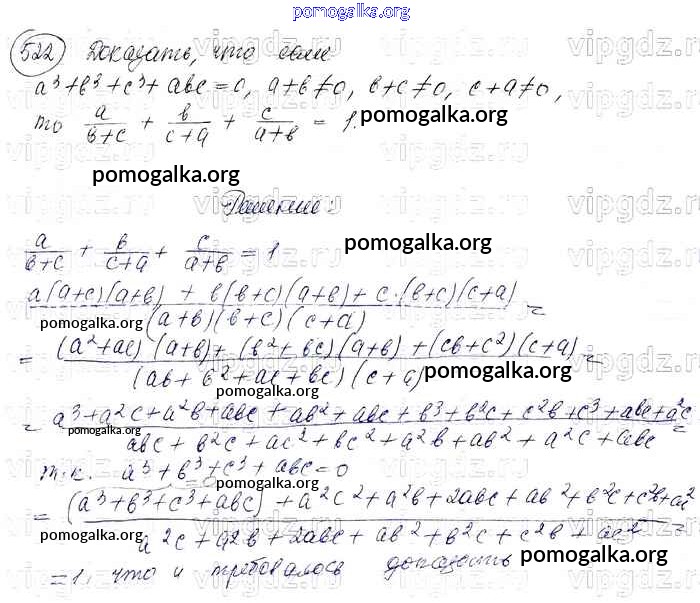 pomogalka.org
522 Доказать, что если
a³+b³+c³+abc=0, a+b≠0, b+c≠0, c+a≠0,
то a/(b+c) + b/(c+a) + c/(a+b) = 1.
pomogalka.org
vipgdz.ru
pomogalka.org
Решение:
a/(b+c) + b/(c+a) + c/(a+b) = 1
pomogalka.org
(a(a+c)(a+b) + b(b+c)(a+b) + c·(b+c)(c+a))/((a+b)(b+c)(c+a)) =
pomogalka.org
= ((a²+ac)(a+b)+(b²+bc)(a+b)+(cb+c²)(c+a))/((ab+b²+ac+bc)(c+a)) =
pomogalka.org
pomogalka.org
= (a³+a²c+a²b+abc+ab²+abc+b³+b²c+c²b+c³+abc+a²c)/(abc+b²c+ac²+bc²+a²b+ab²+a²c+abc) =
т.к. a³+b³+c³+abc=0
= ((a³+b³+c³+abc)+a²c²+a²b+2abc+ab²+b²c+c²b+ac²)/(a²c+a²b+2abc+ab²+b²c+c²b+ac²) =
pomogalka.org
=1, что и требовалось доказать
pomogalka.org